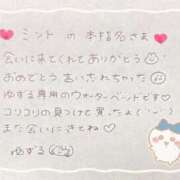 ミントの本指名さま
会いに来てくれてありがとう
おめでとう言いされちゃった
ゆずる専用のウォーターベッドです♡
コリコリの見つけて買ったよ
また会いにきてね♡
ゆずる